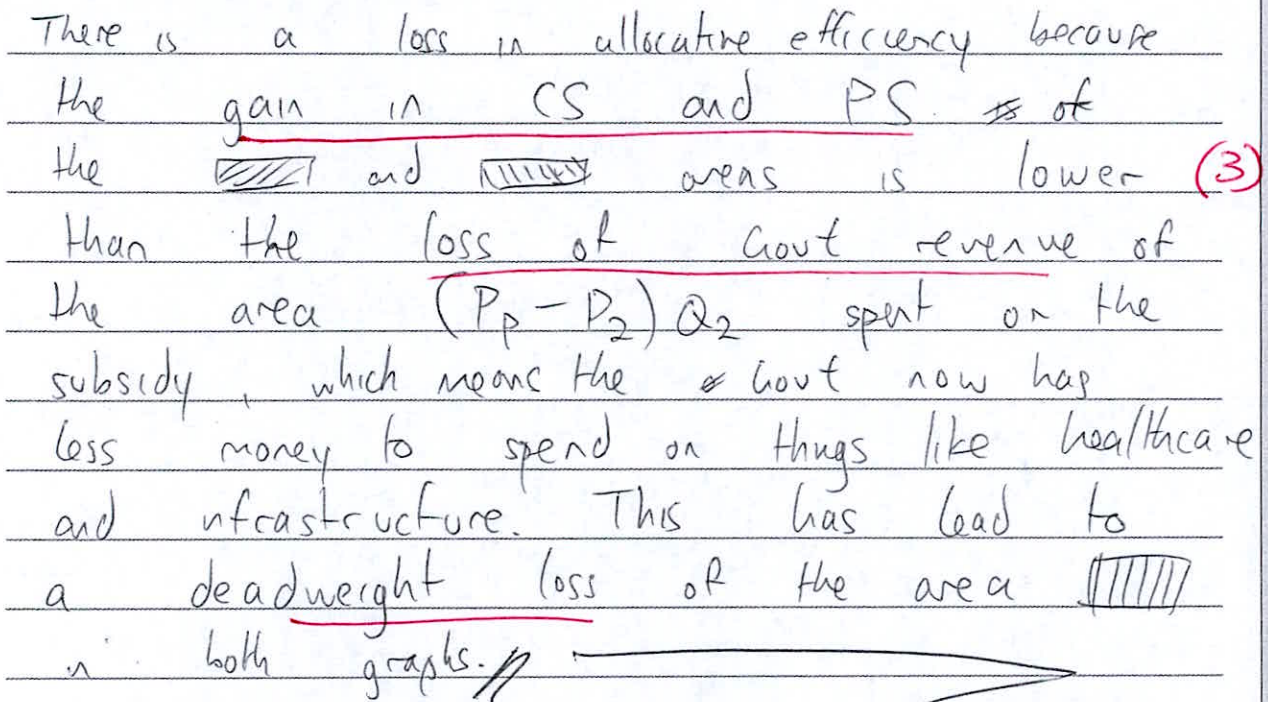 There is a loss in allocative efficiency because
the gain in CS and PS of
the and areas is lower (3)
than the loss of Govt revenue of
the area (Pp - P2) Q2 spent on the
subsidy, which means the Govt now has
less money to spend on things like healthcare
and infrastructure. This has lead to
a deadweight loss of the area
in both graphs.